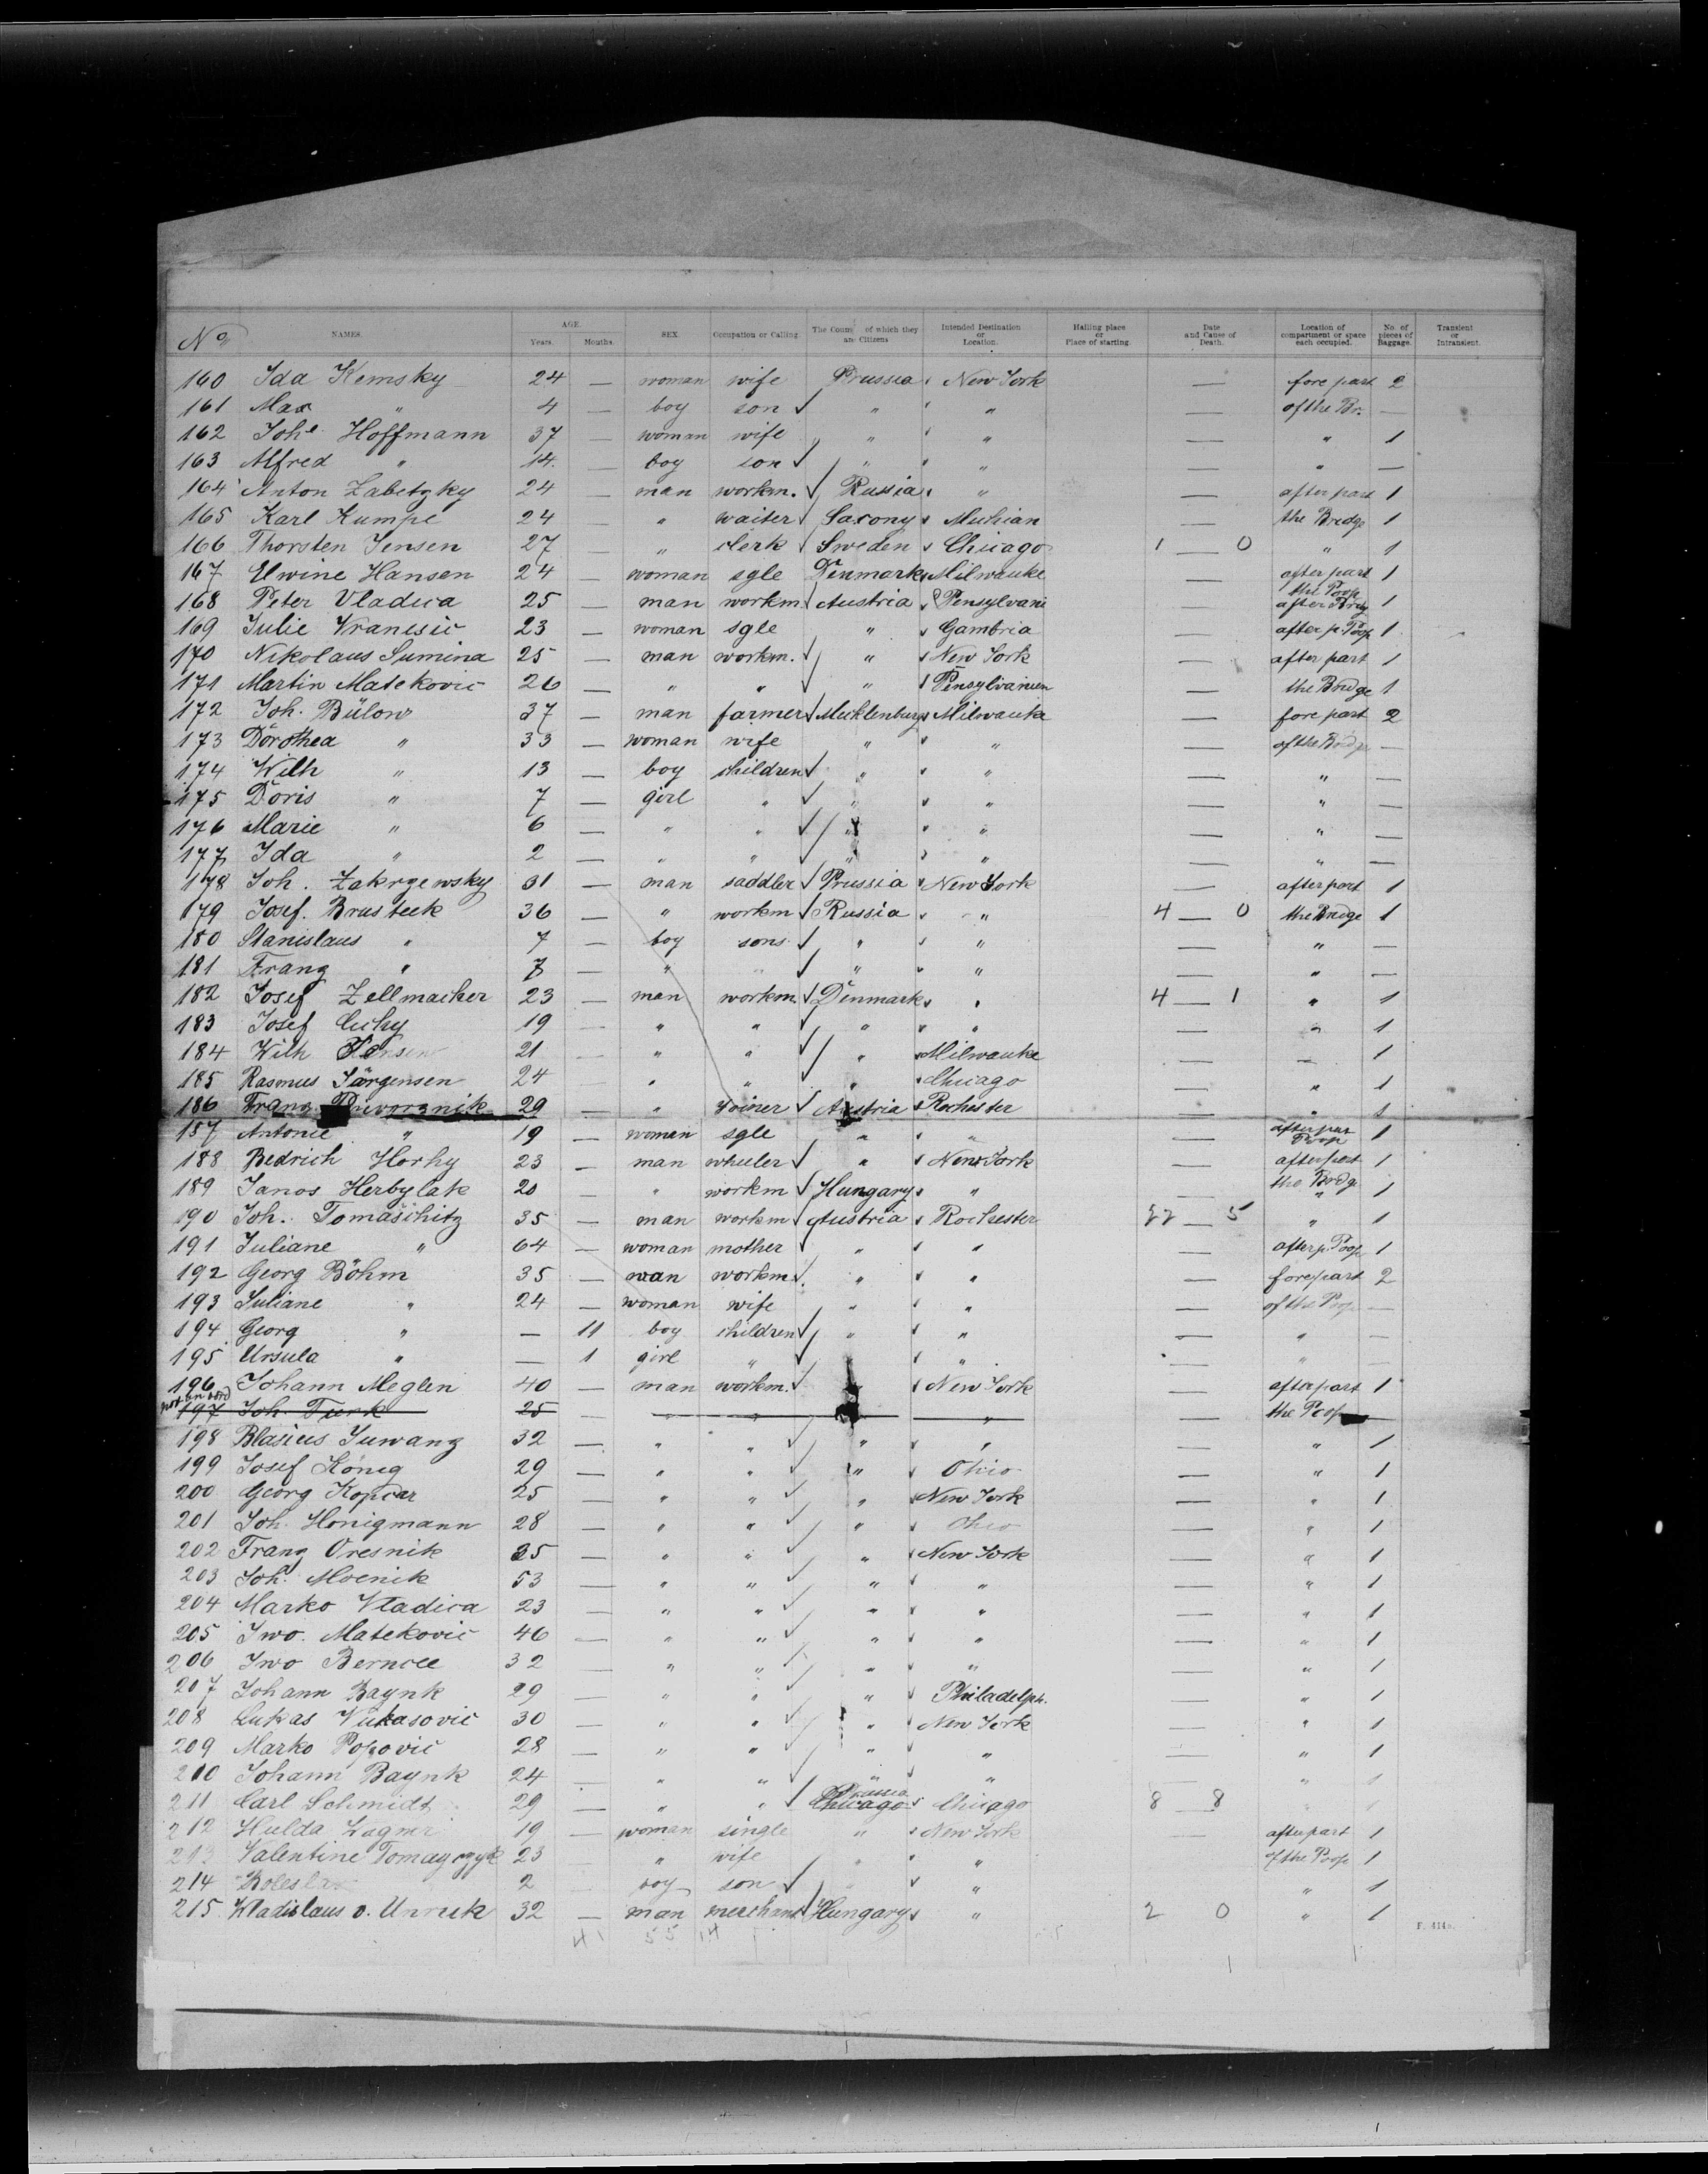 No. NAMES. AGE. Years. Months. SEX. Occupation or Calling. The Coun of which they are Citizens Intended Destination or Location. Hailing place or Place of starting. Date and Cause of Death. Location of compartment or space each occupied. No. of pieces of Baggage. Transient or Intransient.
160 Ida Kemsky 24 — woman wife Prussia New York — fore part 2
161 Max " 4 — boy son " " — of the Br. —
162 Johe Hoffmann 37 — woman wife " " — " 1
163 Alfred " 14 — boy son " " — " —
164 Anton Zabetzky 24 — man workm. Russia " — after part 1
165 Karl Kumpe 24 — " waiter Saxony — the Bredge 1
166 Thorsten Jensen 27 — " clerk Sweden Chicago 1 — 0 " 1
167 Elwine Hansen 24 — woman sgle Denmark Milwauke — after part 1
168 Peter Vladica 25 — man workm. Austria Pensylvani — the Poop after Brdg 1
169 Julie Vranesic 23 — woman sgle " Gambria — after p. Poop 1
170 Nikolaus Sumina 25 — man workm. " New York — after part 1
171 Martin Matekovic 26 — " " " Pensylvanien — the Bridge 1
172 Joh. Bülow 37 — man farmer Mecklenburg Milwauke — fore part 2
173 Dorothea " 33 — woman wife " " — of the Bridge —
174 Wilh " 13 — boy children " " — " —
175 Doris " 7 — girl " " " — " —
176 Marie " 6 — " " " " — " —
177 Ida " 2 — " " " " — " —
178 Joh. Zakrzewsky 31 — man saddler Prussia New York — after part 1
179 Josef. Brusteek 36 — " workm Russia " 4 — 0 the Bridge 1
180 Stanislaus " 7 — boy sons " " — " —
181 Franz " 7 — " " " — " —
182 Josef Zellmacher 23 — man workm. Denmark " 4 — 1 " 1
183 Josef Cichy 19 — " " " " — " 1
184 Wilh 21 — " " " Milwauke — " 1
185 Rasmus Jörgensen 24 " " " Chicago — " 1
186 Franz 29 — " Joiner Austria Rochester — " 1
187 Antonie " 19 — woman sgle " " — after part Poop 1
188 Bedrich Horky 23 — man wheeler " New York — after part 1
189 Janos Herbylak 20 — " workm Hungary " — the Bredge " 1
190 Joh. Tomaschitz 35 — man workm Austria Rochester 22 — 5 " 1
191 Juliane " 64 — woman mother " " — after p. Poop 1
192 Georg Böhm 35 — man workm. " " — fore part 2
193 Juliane " 24 — woman wife " " — of the Poop —
194 Georg " — 11 boy children " " — " —
195 Ursula " — 1 girl " " — " —
196 Johann Meglen 40 — man workm. New York — after part 1
not on bord
197 Joh. Turk 25 " " " — the Poop —
198 Blasius Juwanz 32 — " " " " — " 1
199 Josef König 29 — " " " Ohio — " 1
200 Georg Kopcar 25 — " " " New York — " 1
201 Joh. Honigmann 28 — " " " Ohio — " 1
202 Franz Oresnik 35 — " " " New York — " 1
203 Joh. Mocnik 53 — " " " " — " 1
204 Marko Vladica 23 — " " " " — " 1
205 Iwo. Matekovic 46 — " " " " — " 1
206 Iwo 32 — " " " " — " 1
207 Johann Baynk 29 — " " " Philadelph. — " 1
208 Lukas Vukasovic 30 — " " " New York — " 1
209 Marko Popovic 28 — " " " " — " 1
210 Johann Baynk 24 — " " " " — " 1
211 Carl Schmidt 29 — " " Prussia Chicago Chicago 8 — 8
212 Hulda 19 — woman single " New York — after part 1
213 Valentine Tomayczyk 23 " wife " " of the Poop 1
214 2 boy son " " 1
215 Wladislaus v. Unruk 32 — man merchant Hungary " 2 0 " 1
41 55 14
F. 414a.